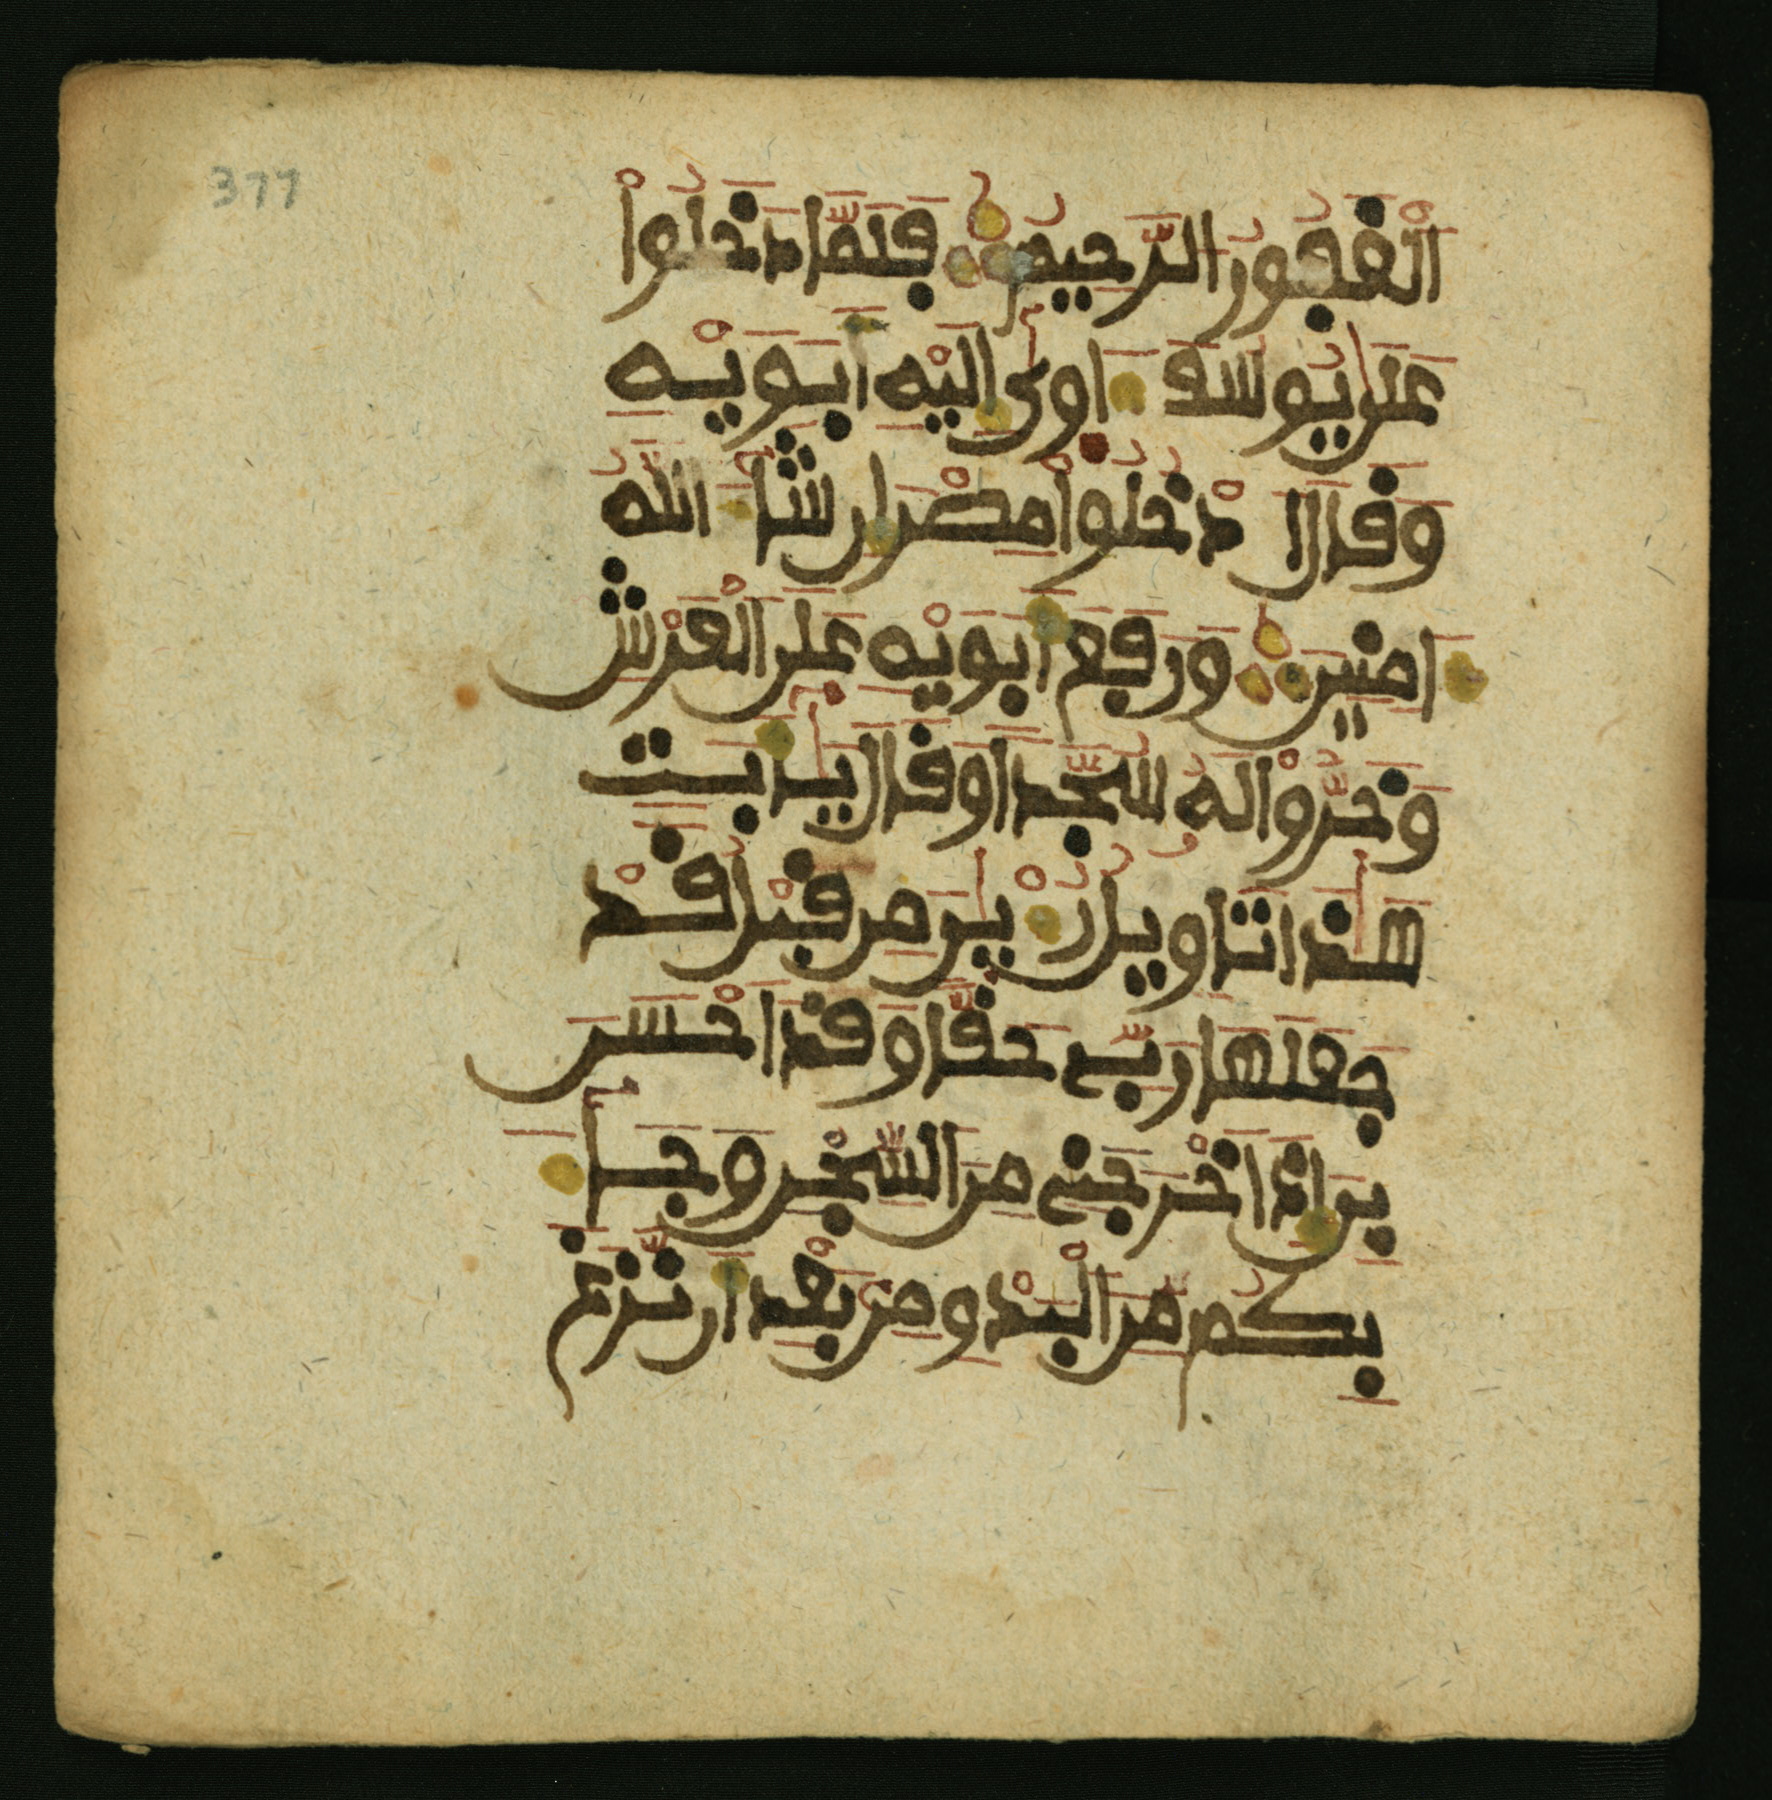 377
الْغَفُورُ الرَّحِيمُ فَلَمَّا دَخَلُواْ
عَلَىٰ يُوسُفَ ءَاوَىٰٓ إِلَيْهِ أَبَوَيْهِ
وَقَالَ ادْخُلُواْ مِصْرَ إِن شَآءَ اللَّهُ
ءَامِنِينَ وَرَفَعَ أَبَوَيْهِ عَلَى الْعَرْشِ
وَخَرُّواْ لَهُ سُجَّدًا وَقَالَ يَٰٓأَبَتِ
هَٰذَا تَأْوِيلُ رُءْيَٰيَ مِن قَبْلُ قَدْ
جَعَلَهَا رَبِّي حَقًّا وَقَدْ أَحْسَنَ
بِي إِذْ أَخْرَجَنِي مِنَ السِّجْنِ وَجَآءَ
بِكُم مِّنَ الْبَدْوِ مِن بَعْدِ أَن نَّزَغَ